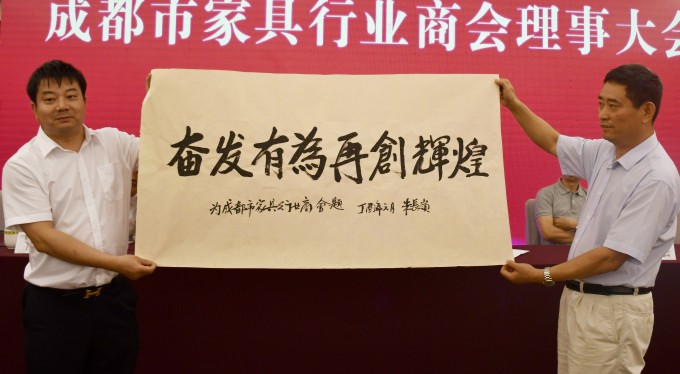 成都市家具行业商会理事大会
奋发有為再創輝煌
为成都市家具行业商会题 丁酉年六月